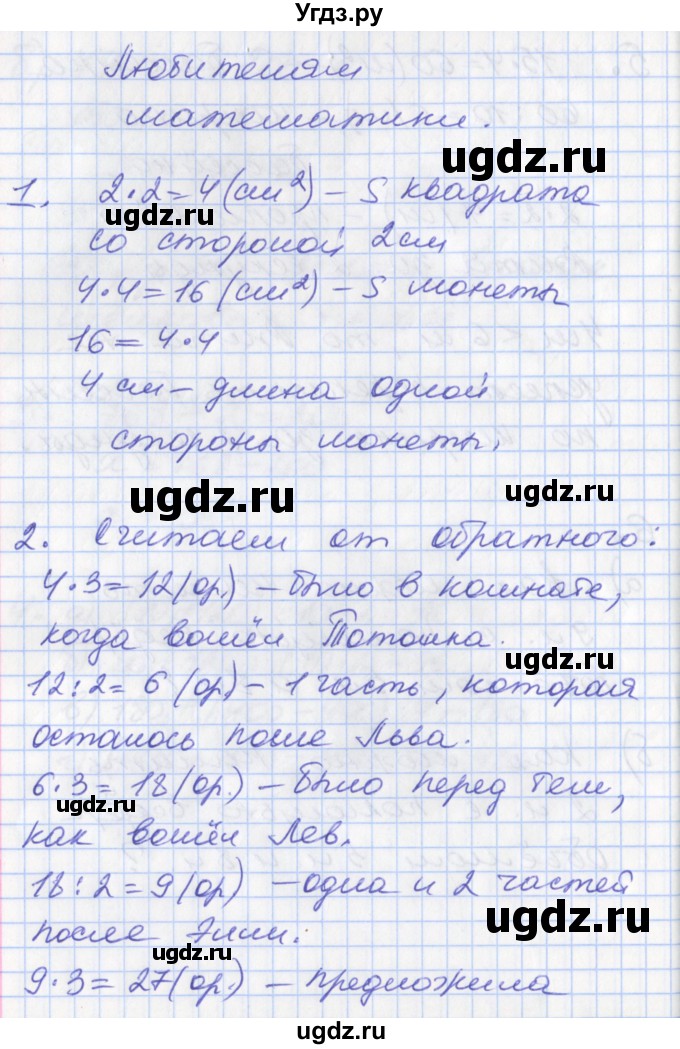 Угдз.ру
Любителям
математики.
ugdz.ru
1. 2·2=4(см²) – S квадрата
со стороной 2см
4·4=16 (см²) – S монеты
ugdz.ru
16=4·4
4 см – длина одной
стороны монеты.
ugdz.ru
ugdz.ru
2. Считаем от обратного:
4·3=12(ор.) – было в комнате,
ugdz.ru
когда вошёл Тотошка.
12:2=6 (ор.) – 1 часть, которая
ugdz.ru
осталось после Льва.
6·3=18(ор.) – было перед тем,
ugdz.ru
как вошёл Лев.
18:2=9(ор) – одна и 2 частей
ugdz.ru
после Элли.
ugdz.ru
9·3=27(ор.) – предложила
ugdz.ru